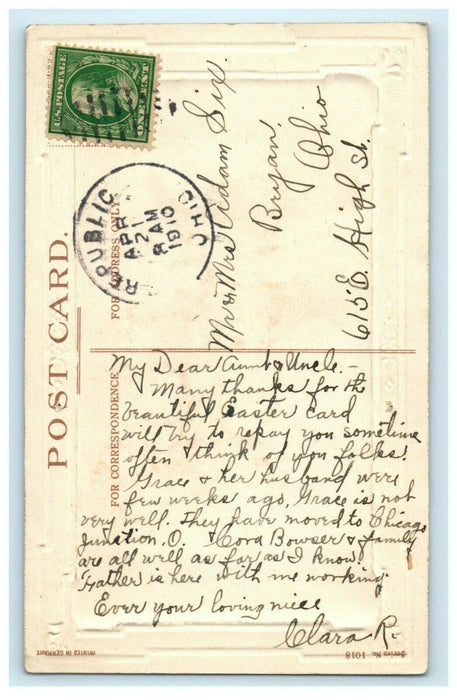 U.S. POSTAGE
ONE CENT
REPUBLIC
APR
21
8 AM
1910
OHIO
POST CARD.
FOR ADDRESS ONLY
FOR CORRESPONDENCE
Mr & Mrs Adam Six.
Bryan,
Ohio
615 E. High St.
My Dear Aunt & Uncle. -
Many thanks for the
beautiful Easter card
will try to repay you sometime
often & think of you folks!
Grace & her husband were
few weeks ago, Grace is not
very well. They have moved to Chicago
Junction, O. & Cora Bowser & family
are all well as far as I know.
Father is here with me working.
Ever your loving niece
Clara R.
PRINTED IN GERMANY
Series No. 1018